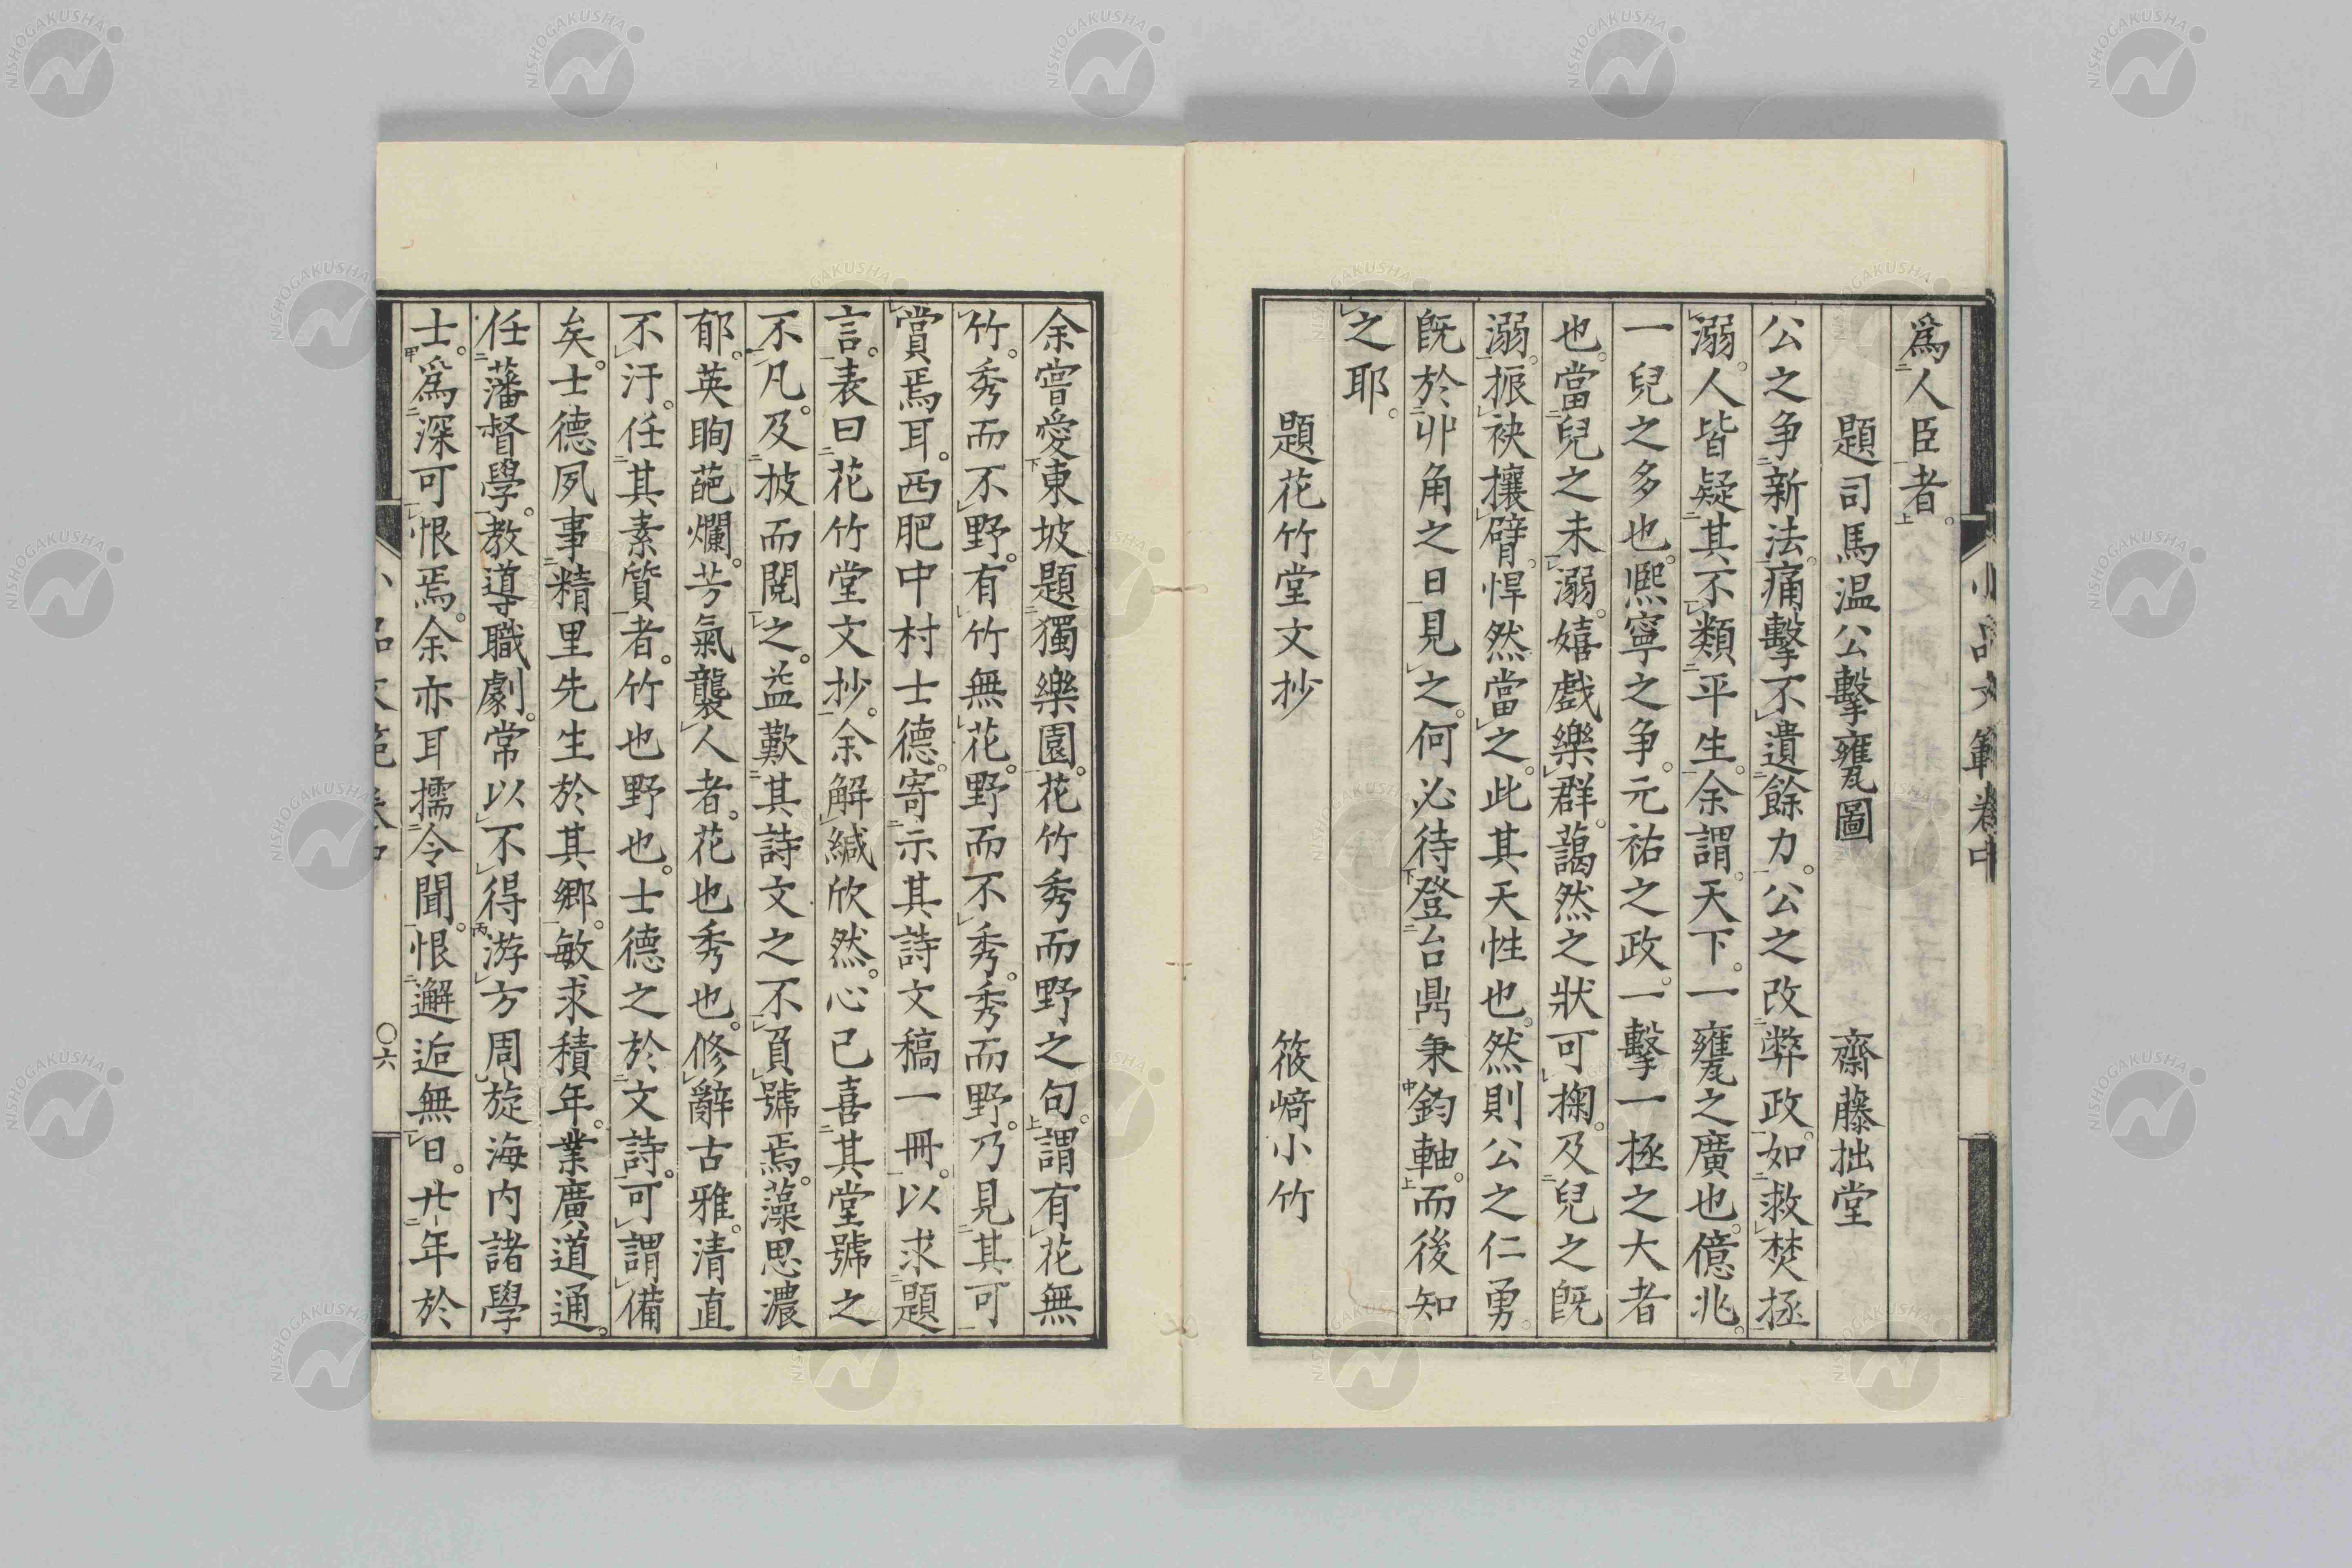 爲人臣者。
題司馬温公擊甕圖　齋藤拙堂
公之争新法。痛擊不遺餘力。公之改弊政。如救焚拯
溺。人皆疑其不類平生。余謂。天下。一甕之廣也。億兆。
一兒之多也。熙寧之争。元祐之政。一擊一拯之大者
也。當兒之未溺。嬉戲樂群。藹然之狀可掬。及兒之既
溺。振袂攘臂。悍然當之。此其天性也。然則公之仁勇。
既於丱角之日見之。何必待登台鼎秉鈞軸。而後知
之耶。
題花竹堂文抄　筱﨑小竹
余嘗愛東坡題獨樂園。花竹秀而野之句。謂有花無
竹。秀而不野。有竹無花。野而不秀。秀而野。乃見其可
賞焉耳。西肥中村士德。寄示其詩文稿一冊。以求題
言。表曰花竹堂文抄。余解緘欣然。心已喜其堂號之
不凡。及披而閱之。益歎其詩文之不負號焉。藻思濃
郁。英眴葩爛。芳氣襲人者。花也秀也。修辭古雅。清直
不汙。任其素質者。竹也野也。士德之於文詩。可謂備
矣。士德夙事精里先生於其鄉。敏求積年。業廣道通。
任藩督學。教導職劇。常以不得游方周旋海内諸學
士。爲深可恨焉。余亦耳擩令聞。恨邂逅無日。廿年於
小品文範 卷中
〇六
NISHOGAKUSHA